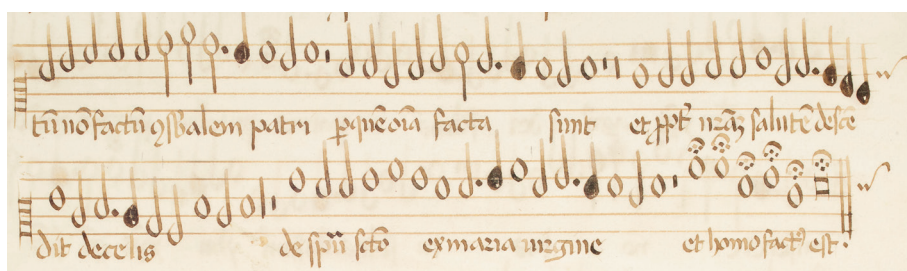 tū nō factū ꝯsb̄alem patri ꝑ quē oīa facta sunt et ꝓpt̄ nr̄aꝫ salutē desce
dit de celis de sp̄u sct̄o ex maria uirgine et homo fact᷒ est.